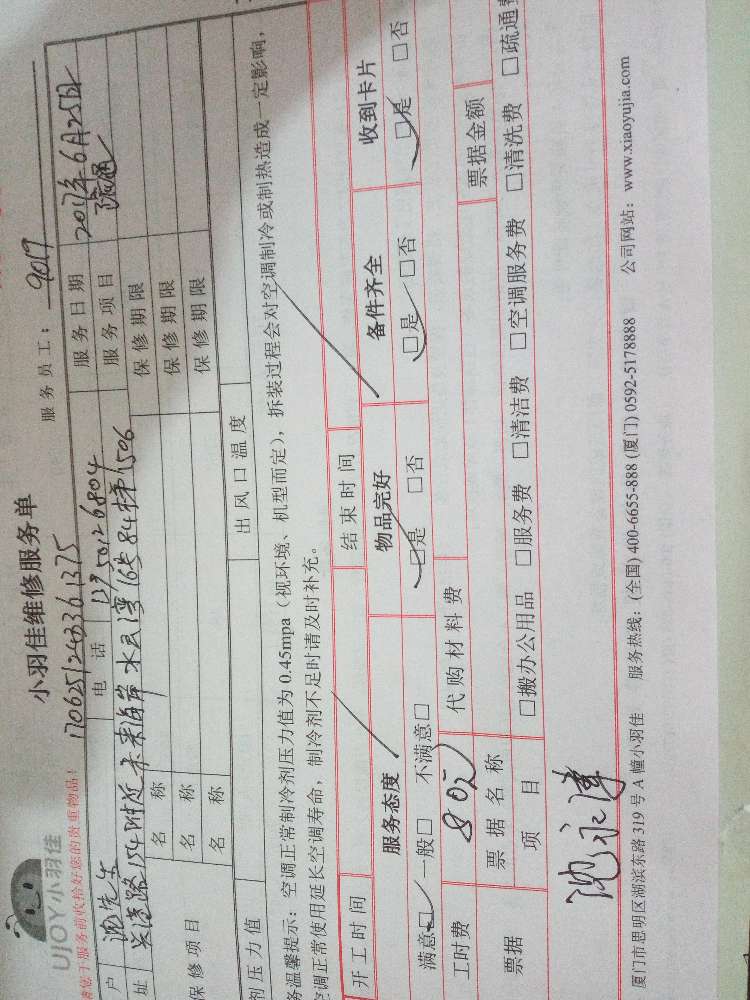 UJOY小羽佳
小羽佳维修服务单
服务员工：9017
请您于服务前收拾好您的贵重物品！
1706251243361375
户 沈先生 电话 13950126804 服务日期 2017年6月25日
址 兴港路154附近未来海岸水云湾16号84梯1506 服务项目
名称 保修期限
保修项目 名称 保修期限
名称 保修期限
剂压力值 出风口温度
务温馨提示：空调正常制冷剂压力值为0.45mpa（视环境、机型而定），拆装过程会对空调制冷或制热造成一定影响，
空调正常使用延长空调寿命，制冷剂不足时请及时补充。
开工时间 结束时间
服务态度 物品完好 备件齐全 收到卡片
满意□ 一般□ 不满意□ □是 □否 □是 □否 □是 □否
工时费 80元 代购材料费
票据 票据名称 票据金额
项目 □搬办公用品 □服务费 □清洁费 □空调服务费 □清洗费 □疏通费
沈永津
厦门市思明区湖滨东路319号A幢小羽佳 服务热线：(全国) 400-6655-888 (厦门) 0592-5178888 公司网站：www.xiaoyujia.com